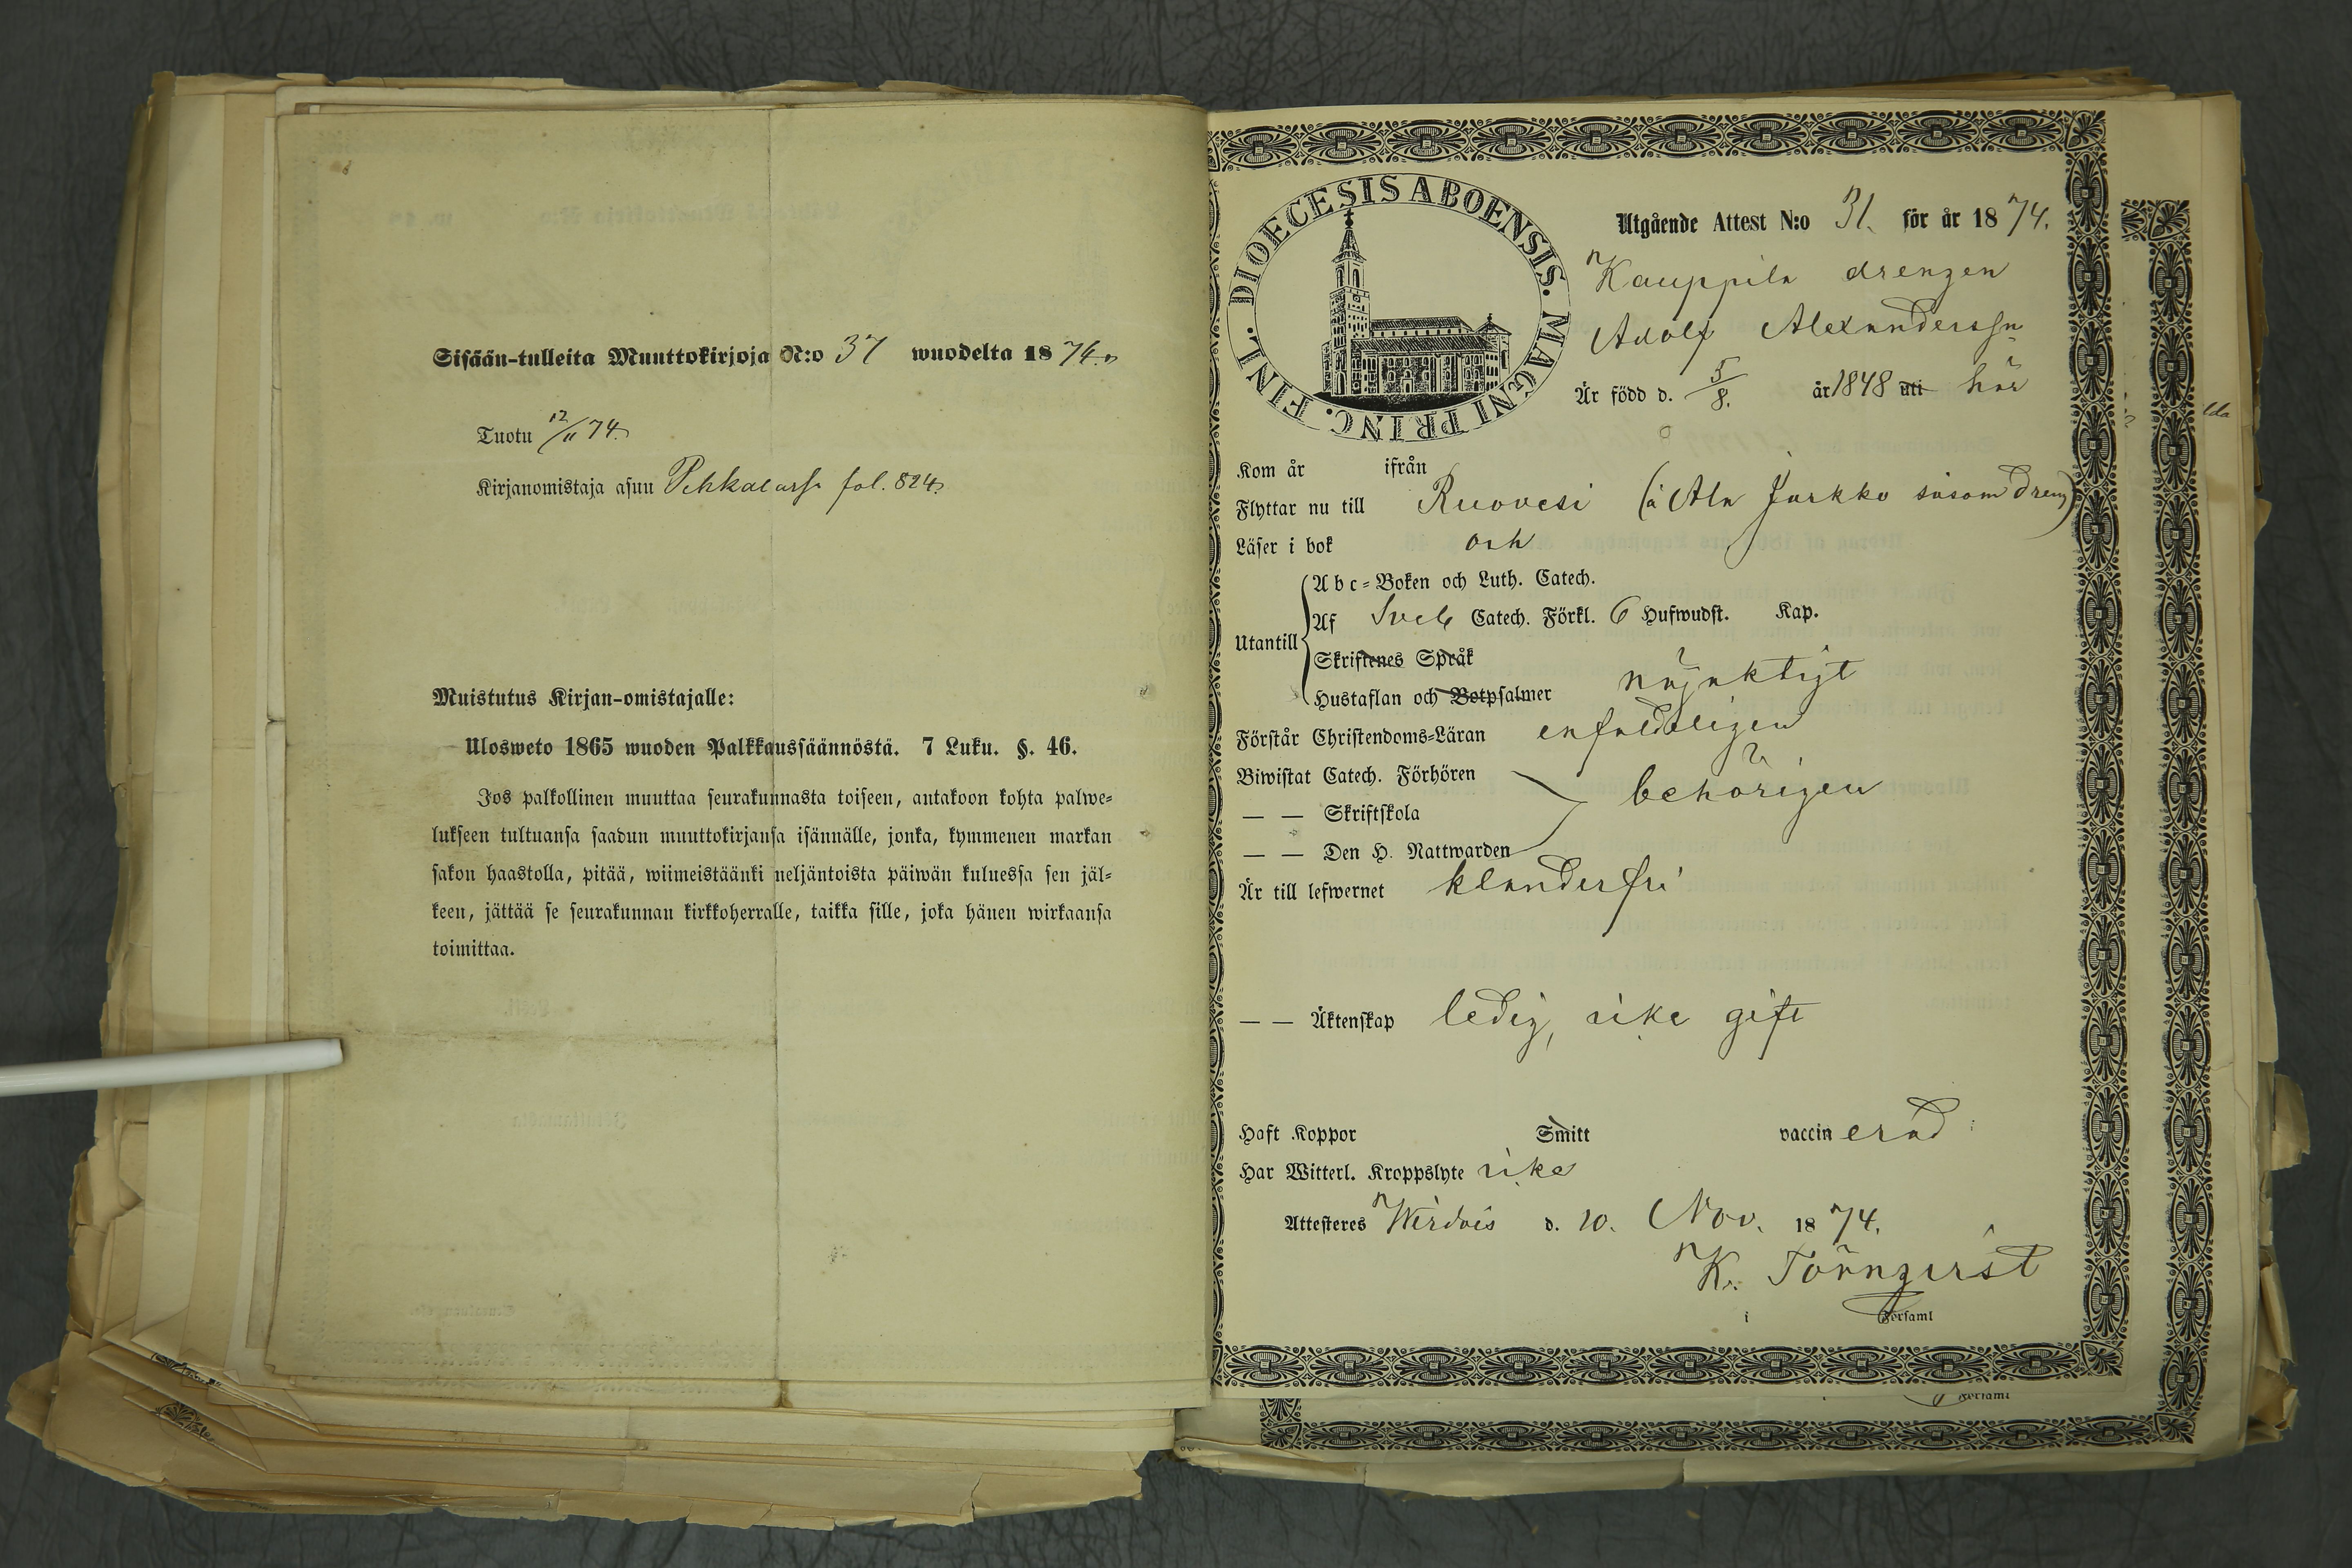 Sisään-tulleita Muuttokirjoja N:o 37 wuodelta 1874.
Tuotu 12/11 74.
Kirjanomistaja asuu Pehkalassa fol. 824.
Muistutus Kirjan-omistajalle:
Ulosweto 1865 wuoden Palkkaussäännöstä. 7 Luku. §. 46.
Jos palkollinen muuttaa seurakunnasta toiseen, antakoon kohta palwe-
lukseen tultuansa saadun muuttokirjansa isännälle, jonka, kymmenen markan
sakon haastolla, pitää, wiimeistäänki neljäntoista päiwän kuluessa sen jäl-
keen, jättää se seurakunnan kirkkoherralle, taikka sille, joka hänen wirkaansa
toimittaa.
FINL. DIOECESIS ABOENSIS. MAGNI PRINC.
Utgående Attest N:o 31. för år 1874.
Kauppila drengen
Adolf Alexandersson
Är född d. 5/8. år 1848 uti här
Kom år ifrån
Flyttar nu till Ruovesi (å Ala Jurkko såsom dreng)
Läser i bok och
Utantill
Abc-Boken och Luth. Catech.
Af Sveb Catech. Förkl. 6 Hufwudst. Kap.
Skriftenes Språk
Hustaflan och Botpsalmer nöjaktigt
Förstår Christendoms-Läran enfaldeligen
Biwistat Catech. Förhören behörigen
— — Skriftskola
— — Den H. Nattwarden
Är till lefwernet klanderfri
— — Äktenskap ledig, icke gift
Haft Koppor Smitt vaccinerad
Har Witterl. Kroppslyte icke
Attesteres Wirdois d. 10. Nov. 1874.
K. Törnqvist
i Församl